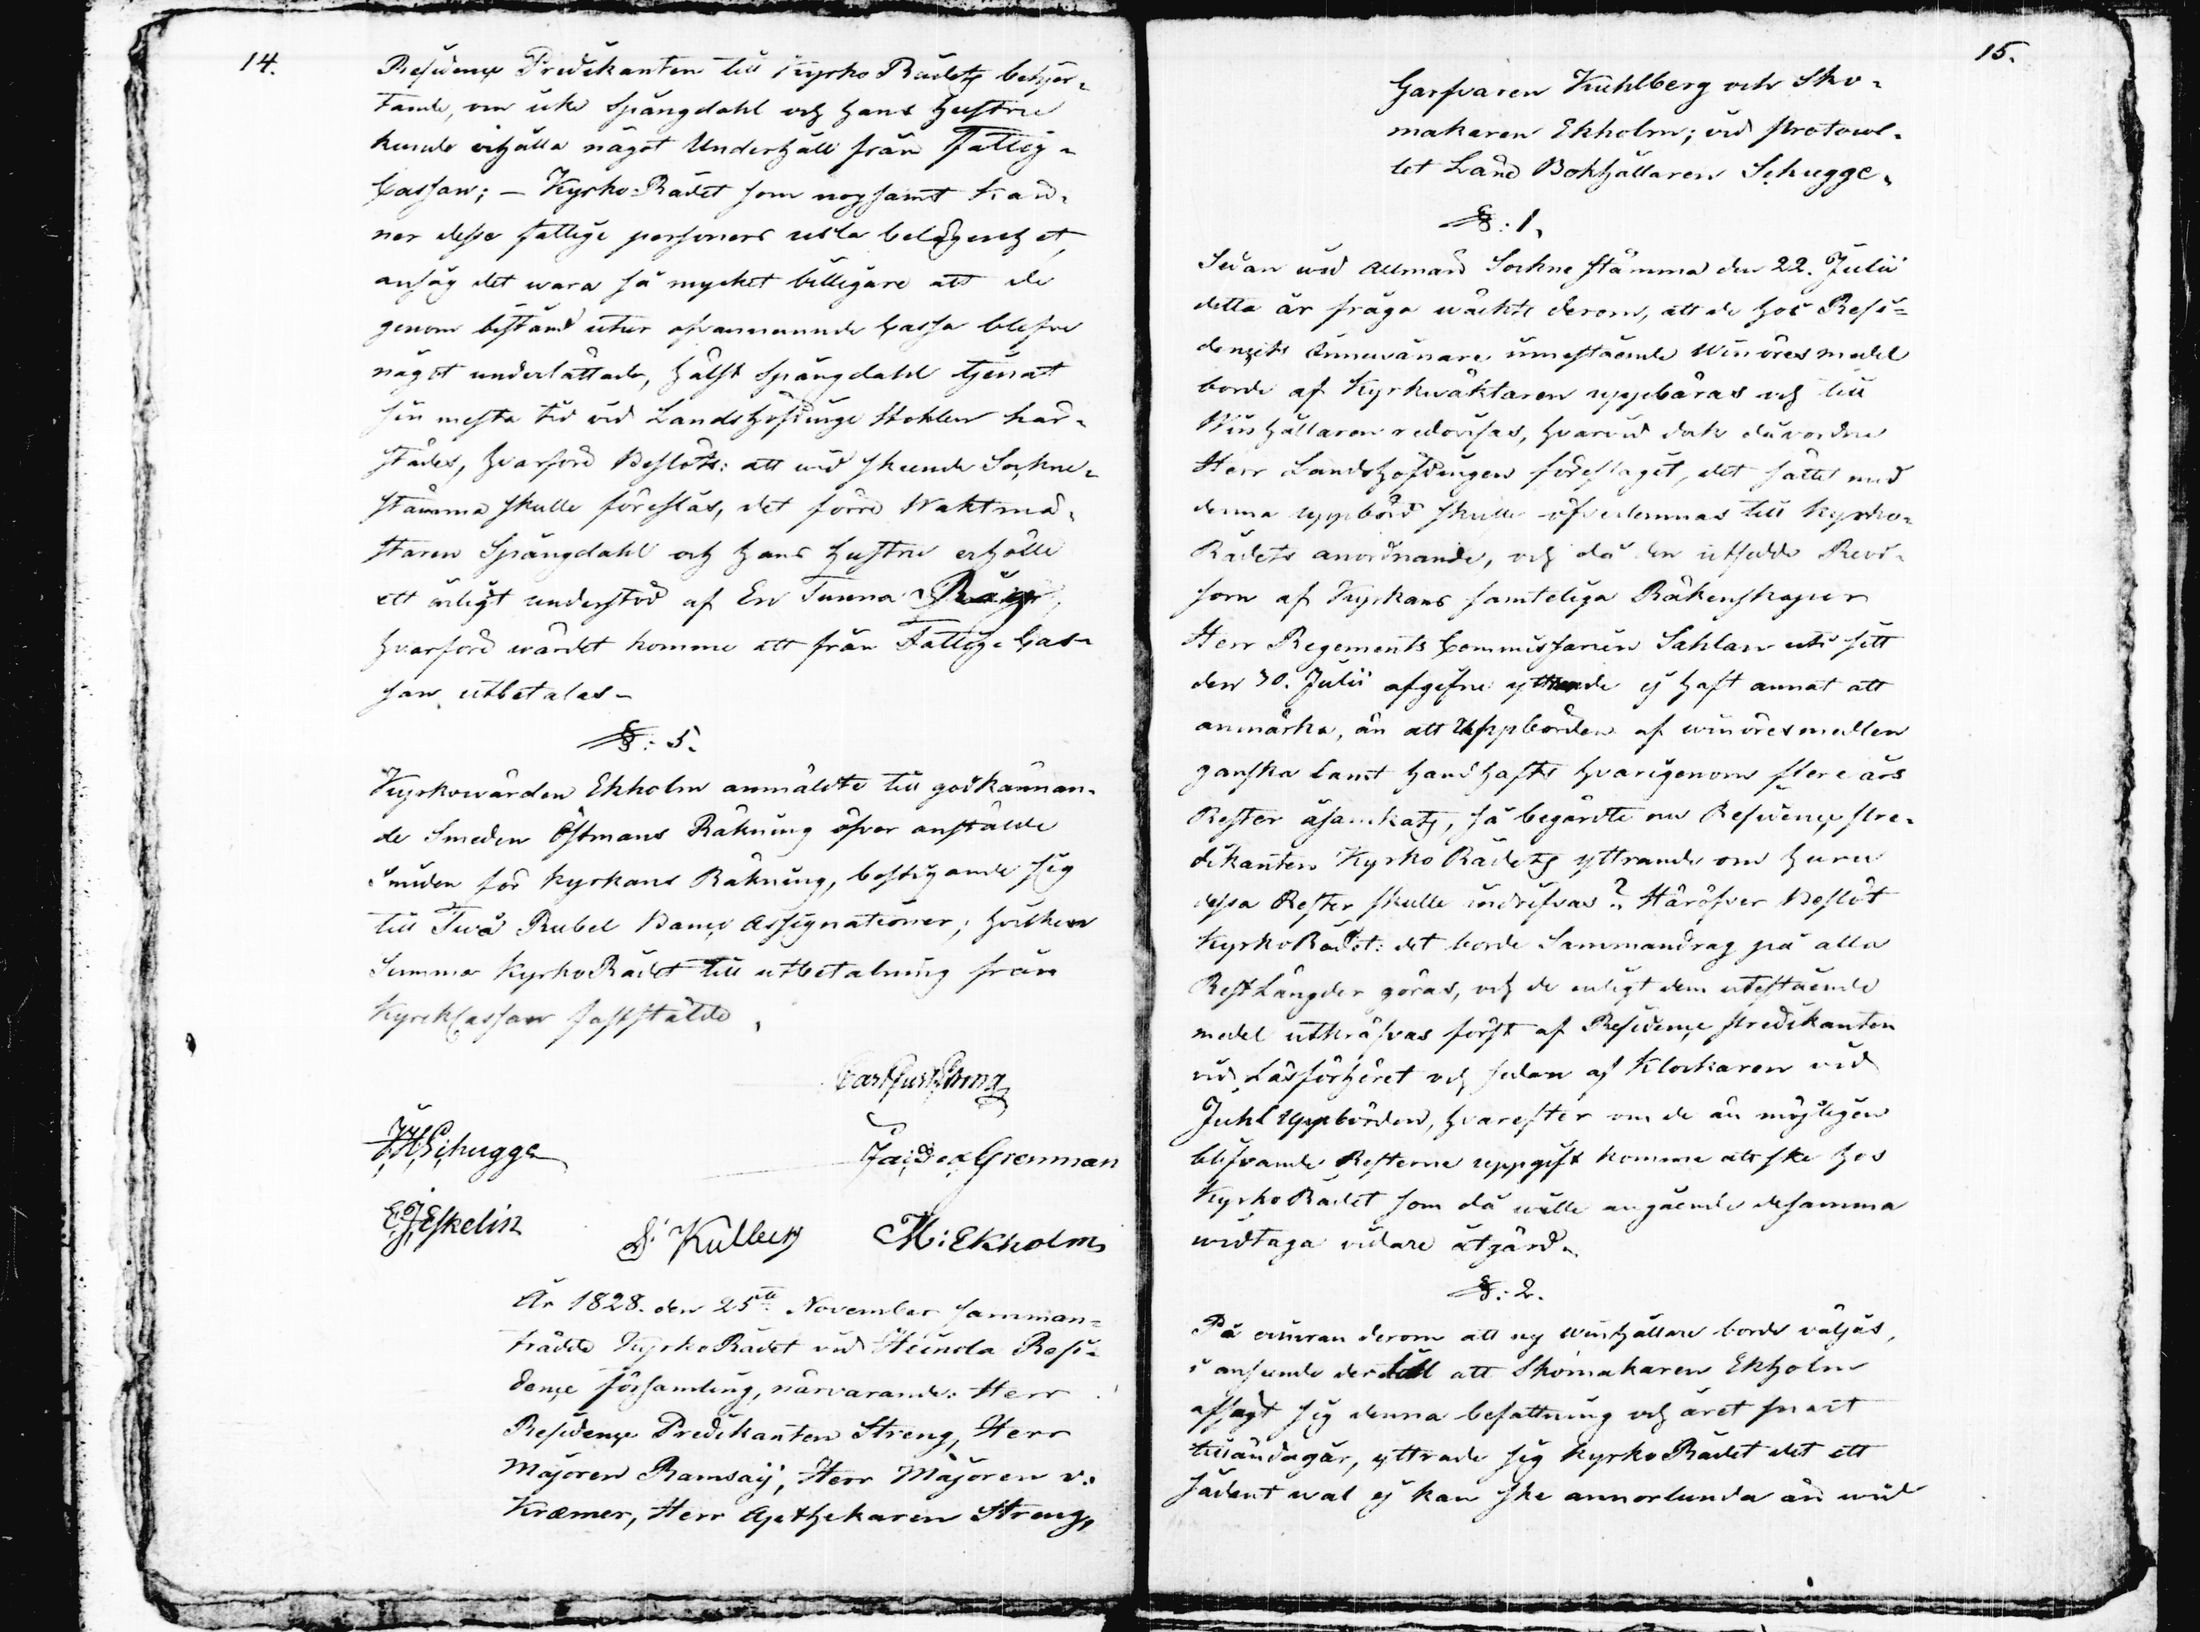 14.
Residence Predikanten till Kyrko Rådets behjer-
tande, om icke Spångdahl och hans hustru
kunde erhålla något Underhåll från Fattig-
Cassan; – Kyrko-Rådet som nogsamt kän-
ner desse fattige personers usla belägenhet,
ansåg det wara så mycket billigare att de
genom bistånd utur ofvannämnde Cassa blefve
något underlättade, hälst Spångdahl tjenat
sin mesta tid vid Landshöfdinge Stohlen här-
städes, hvarföre Beslöts: att wid skeende Sockne-
stämma skulle föreslås, det förre Waktmä-
staren Spångdahl och hans hustru erhålle
ett årligt understöd af En Tunna Råg,
hvarföre wärdet komme att från Fattig-Cas-
san utbetalas.
§: 5.
Kyrkowärden Ekholm anmälde till godkännan-
de Smeden Östmans Räkning öfver anstälde
smiden för kyrkans Räkning, bestigande sig
till Två Rubel Banco Assignationer; hvilken
Summa Kyrko Rådet till utbetalning från
KyrckCassan fastställde.
Carl Gust Streng
Schugge
Grenman
Eskelin
Kulberg M: Ekholm
År 1828. den 25te November samman-
trädde Kyrko Rådet vid Heinola Resi-
dence församling, närvarande: Herr
Residence Predikanten Streng, Herr
Majoren Ramsay, Herr Majoren v:
Kræmer, Herr Apothekaren Streng,
15.
Garfvaren Kuhlberg och Sko-
makaren Ekholm; vid protocol-
let Land Bokhållaren Schugge.
§: 1.
Sedan wid allmän Sockne stämma den 22. Julii
detta år fråga wäckts derom, att de hos Resi-
dencets Innevånare innestående Winöresmedel
borde af Kyrkwäktaren uppbäras och till
Winhållaren redovisas, hvarvid dock dåvarande
Herr Landshöfdingen föreslagit, det sättet med
denna uppbörd skulle öfverlemnas till Kyrko-
Rådets anordnande, och då den utsedde Revi-
sorn af Kyrkans samteliga Räkenskaper
Herr Regements Commissarien Sahlan uti sitt
den 30. Julii afgifne yttrande ej haft annat att
anmärka, än att Uppbörden af winöresmedlen
ganska lamt handhafts hvarigenom flere års
Rester åsamkats, så begärdte nu Residence Pre-
dikanten Kyrko Rådets yttrande om huru
dessa Rester skulle indrifvas? Häröfver Beslöt
Kyrko Rådet: det borde Sammandrag på alla
Rest Längder göras, och de enligt dem utestående
medel utkräfvas först af Residence Predikanten
vid Läsförhöret och sedan af Klockaren vid
Juhl Uppbörden, hvarefter om de än möjligen
blifvande Resterne uppgift komme att ske hos
Kyrko Rådet som då wille angående desamma
widtaga vidare åtgärd.
§: 2.
På erinran derom att ny winhållare borde väljas,
i anseende dertill att Skomakaren Ekholm
afsagt sig denna befattning och året snart
tilländagår, yttrade sig Kyrko Rådet det ett
sådant wal ej kan ske annorlunda än wid